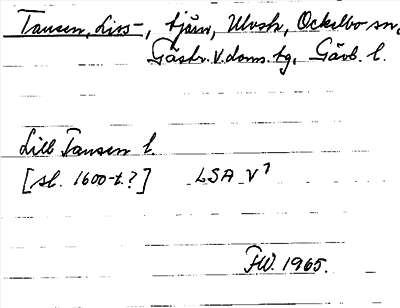 Tansen, Liss-, tjärn, Ulvsh, Ockelbo sn,
Gästr. V. doms. tg, Gävb. l.
Lill Tansen l.
[sl. 1600-t.?] LSA V 7
FW. 1965.